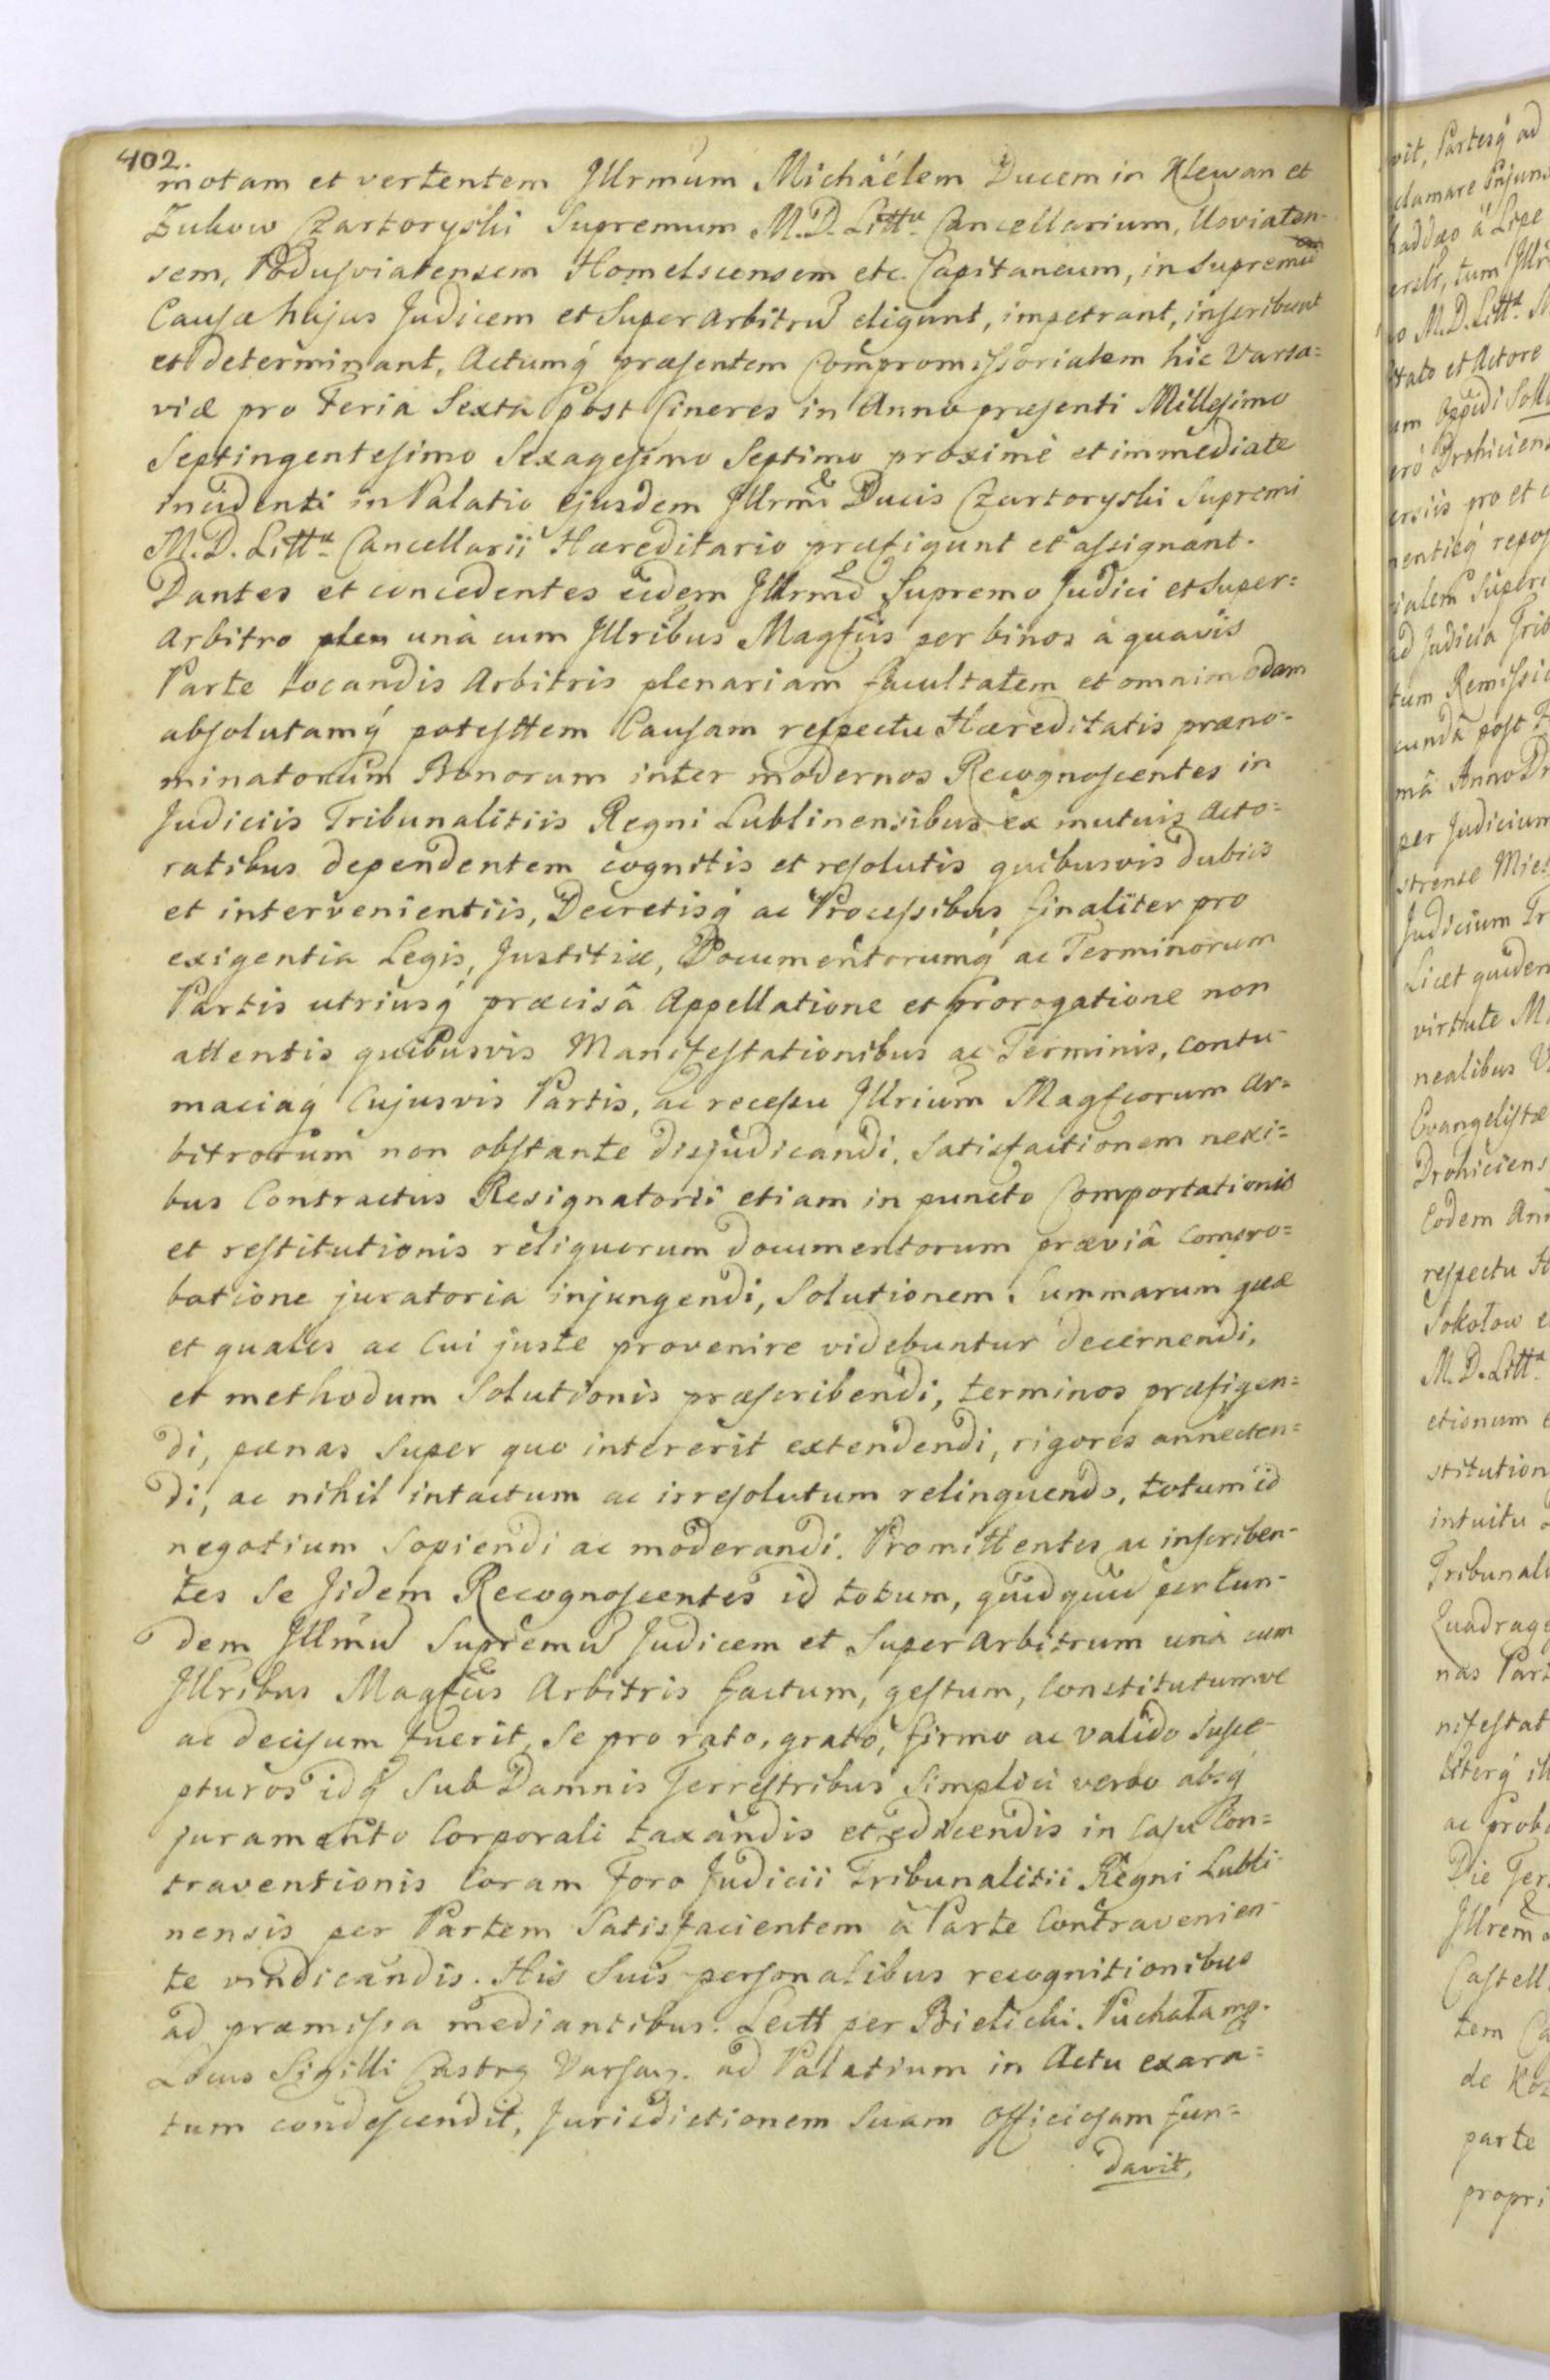 402.
motam et vertentem Jllrmum Michaélem Ducem in Klewan et
Zukow Czartoryski Supremum M. D. Littæ Cancellarium, Usviaten-
sem, Podusviatensem Homelscensem etc. Capitaneum, in Supremũ
Causæ hujus Judicem et Super Arbitrũ eligunt, impetrant, inscribunt
et determinant, Actumq́ præsentem Compromissorialem hic Varsa=
viæ pro Feria Sexta post Cineres in Anno præsenti Millesimo
Septingentesimo Sexagesimo Septimo proximè et immediate
incidenti in Palatio ejusdem Jllrmi Ducis Czartoryski Supremi
M. D. Littæ Cancellarii Hæreditario præfigunt et assignant.
Dantes et concedentes eidem Jllrmo Supremo Judici et Super=
Arbitro plen unà cum Jllribus Magfcis per binos à quavis
Parte locandis Arbitris plenariam facultatem et omnimodam
absolutamq́ potesttem Causam respectu Hæreditatis præno-
minatorum Bonorum inter modernos Recognoscentes in
Judiciis Tribunalitiis Regni Lublinensibus ex mutuis Acto=
ratibus dependentem cognitis et resolutis quibusvis dubiis
et intervenientiis, Decretisq́ ac Processibus finaliter pro
exigentia Legis, Justitiæ, Documentorumq́ ac Terminorum
Partis utriusq́ præcisâ Appellatione et prorogatione non
attentis quibusvis Manifestationibus ac Terminis, contu-
maciaq́ Cujusvis Partis, ac recessu Jllrium Magfcorum Ar=
bitrorum non obstante disjudicandi, Satisfactionem nexi=
bus Contractus Resignatorii etiam in puncto Comportationis
et restitutionis reliquorum documentorum præviâ Compro=
batione juratoria injungendi, Solutionem Summarum quæ
et quales ac Cui juste provenire videbuntur decernendi,
et methodum Solutionis præscribendi, terminos præfigen=
di, pænas Super quo intererit extendendi, rigores annecten=
di, ac nihil intactum ac irresolutum relinquendo, totum id
negotium Sopiendi ac moderandi. Promittentes ac inscriben-
tes Se Jidem Recognoscentes id totum, quidquid per Eun-
dem Jllmũ Supremũ Judicem et Super Arbitrum unà cum
Jllribus Magfcis Arbitris factum, gestum, Constitutumve
ac decisum fuerit, Se pro rato, grato, firmo ac valido Susce-
pturos idq́ Sub Damnis Terrestribus Simplici verbo absq́
juramento Corporali taxandis et edicendis in Casu Con=
traventionis Coram Foro Judicii Tribunalitii Regni Lubli-
nensis per Partem Satisfacientem à Parte Contravenien-
te vindicandis. His Suis personalibus recognitionibus
ad præmissa mediantibus. Lectt per Bielicki. Puchała mp.
Locus Sigilli Castrg Varsav. ad Palatium in Actu exara=
tum condescendit, Jurisdictionem Suam Officiosam fun=
davit,